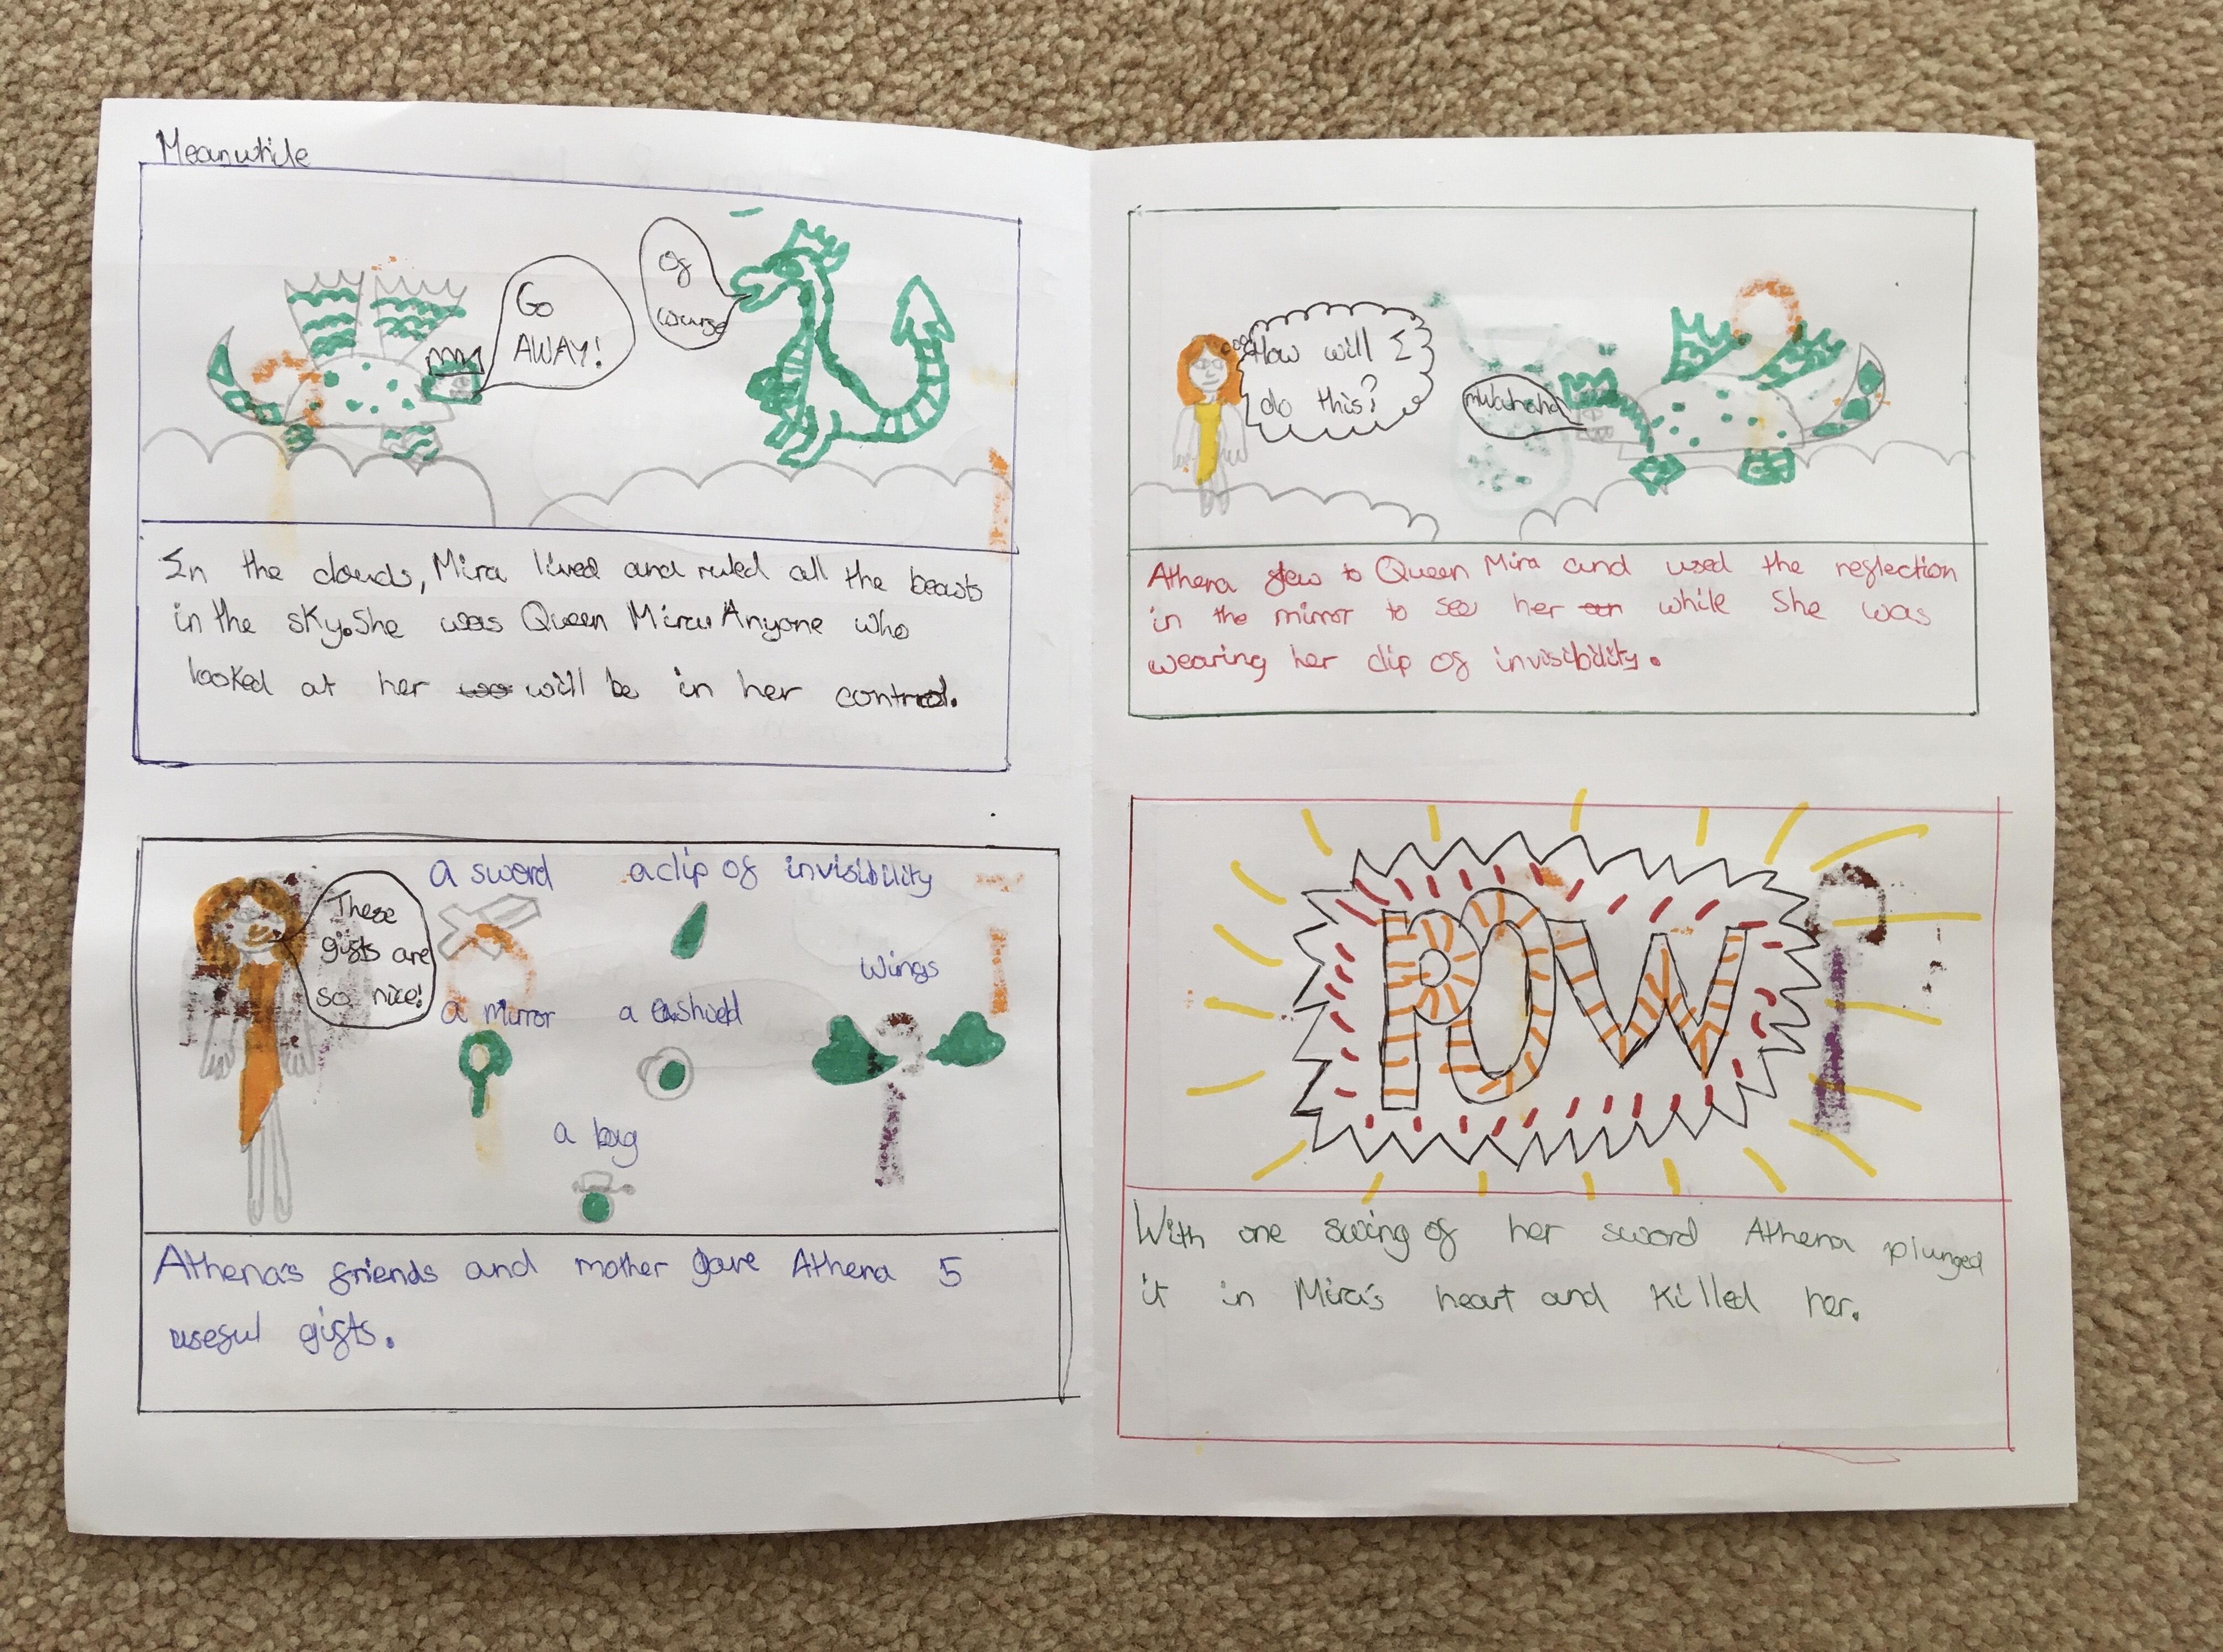 Meanwhile
Go
AWAY!
Of
course
In the clouds, Mira lived and ruled all the beasts
in the sky. She was Queen Mira. Anyone who
looked at her will be in her control.
These
gifts are
so nice!
a sword
a clip of invisibility
wings
a mirror
a shield
a bag
Athena's friends and mother gave Athena 5
useful gifts.
How will I
do this?
mwahaha
Athena flew to Queen Mira and used the reflection
in the mirror to see her while she was
wearing her clip of invisibility.
POW
With one swing of her sword Athena plunged
it in Mira's heart and killed her.